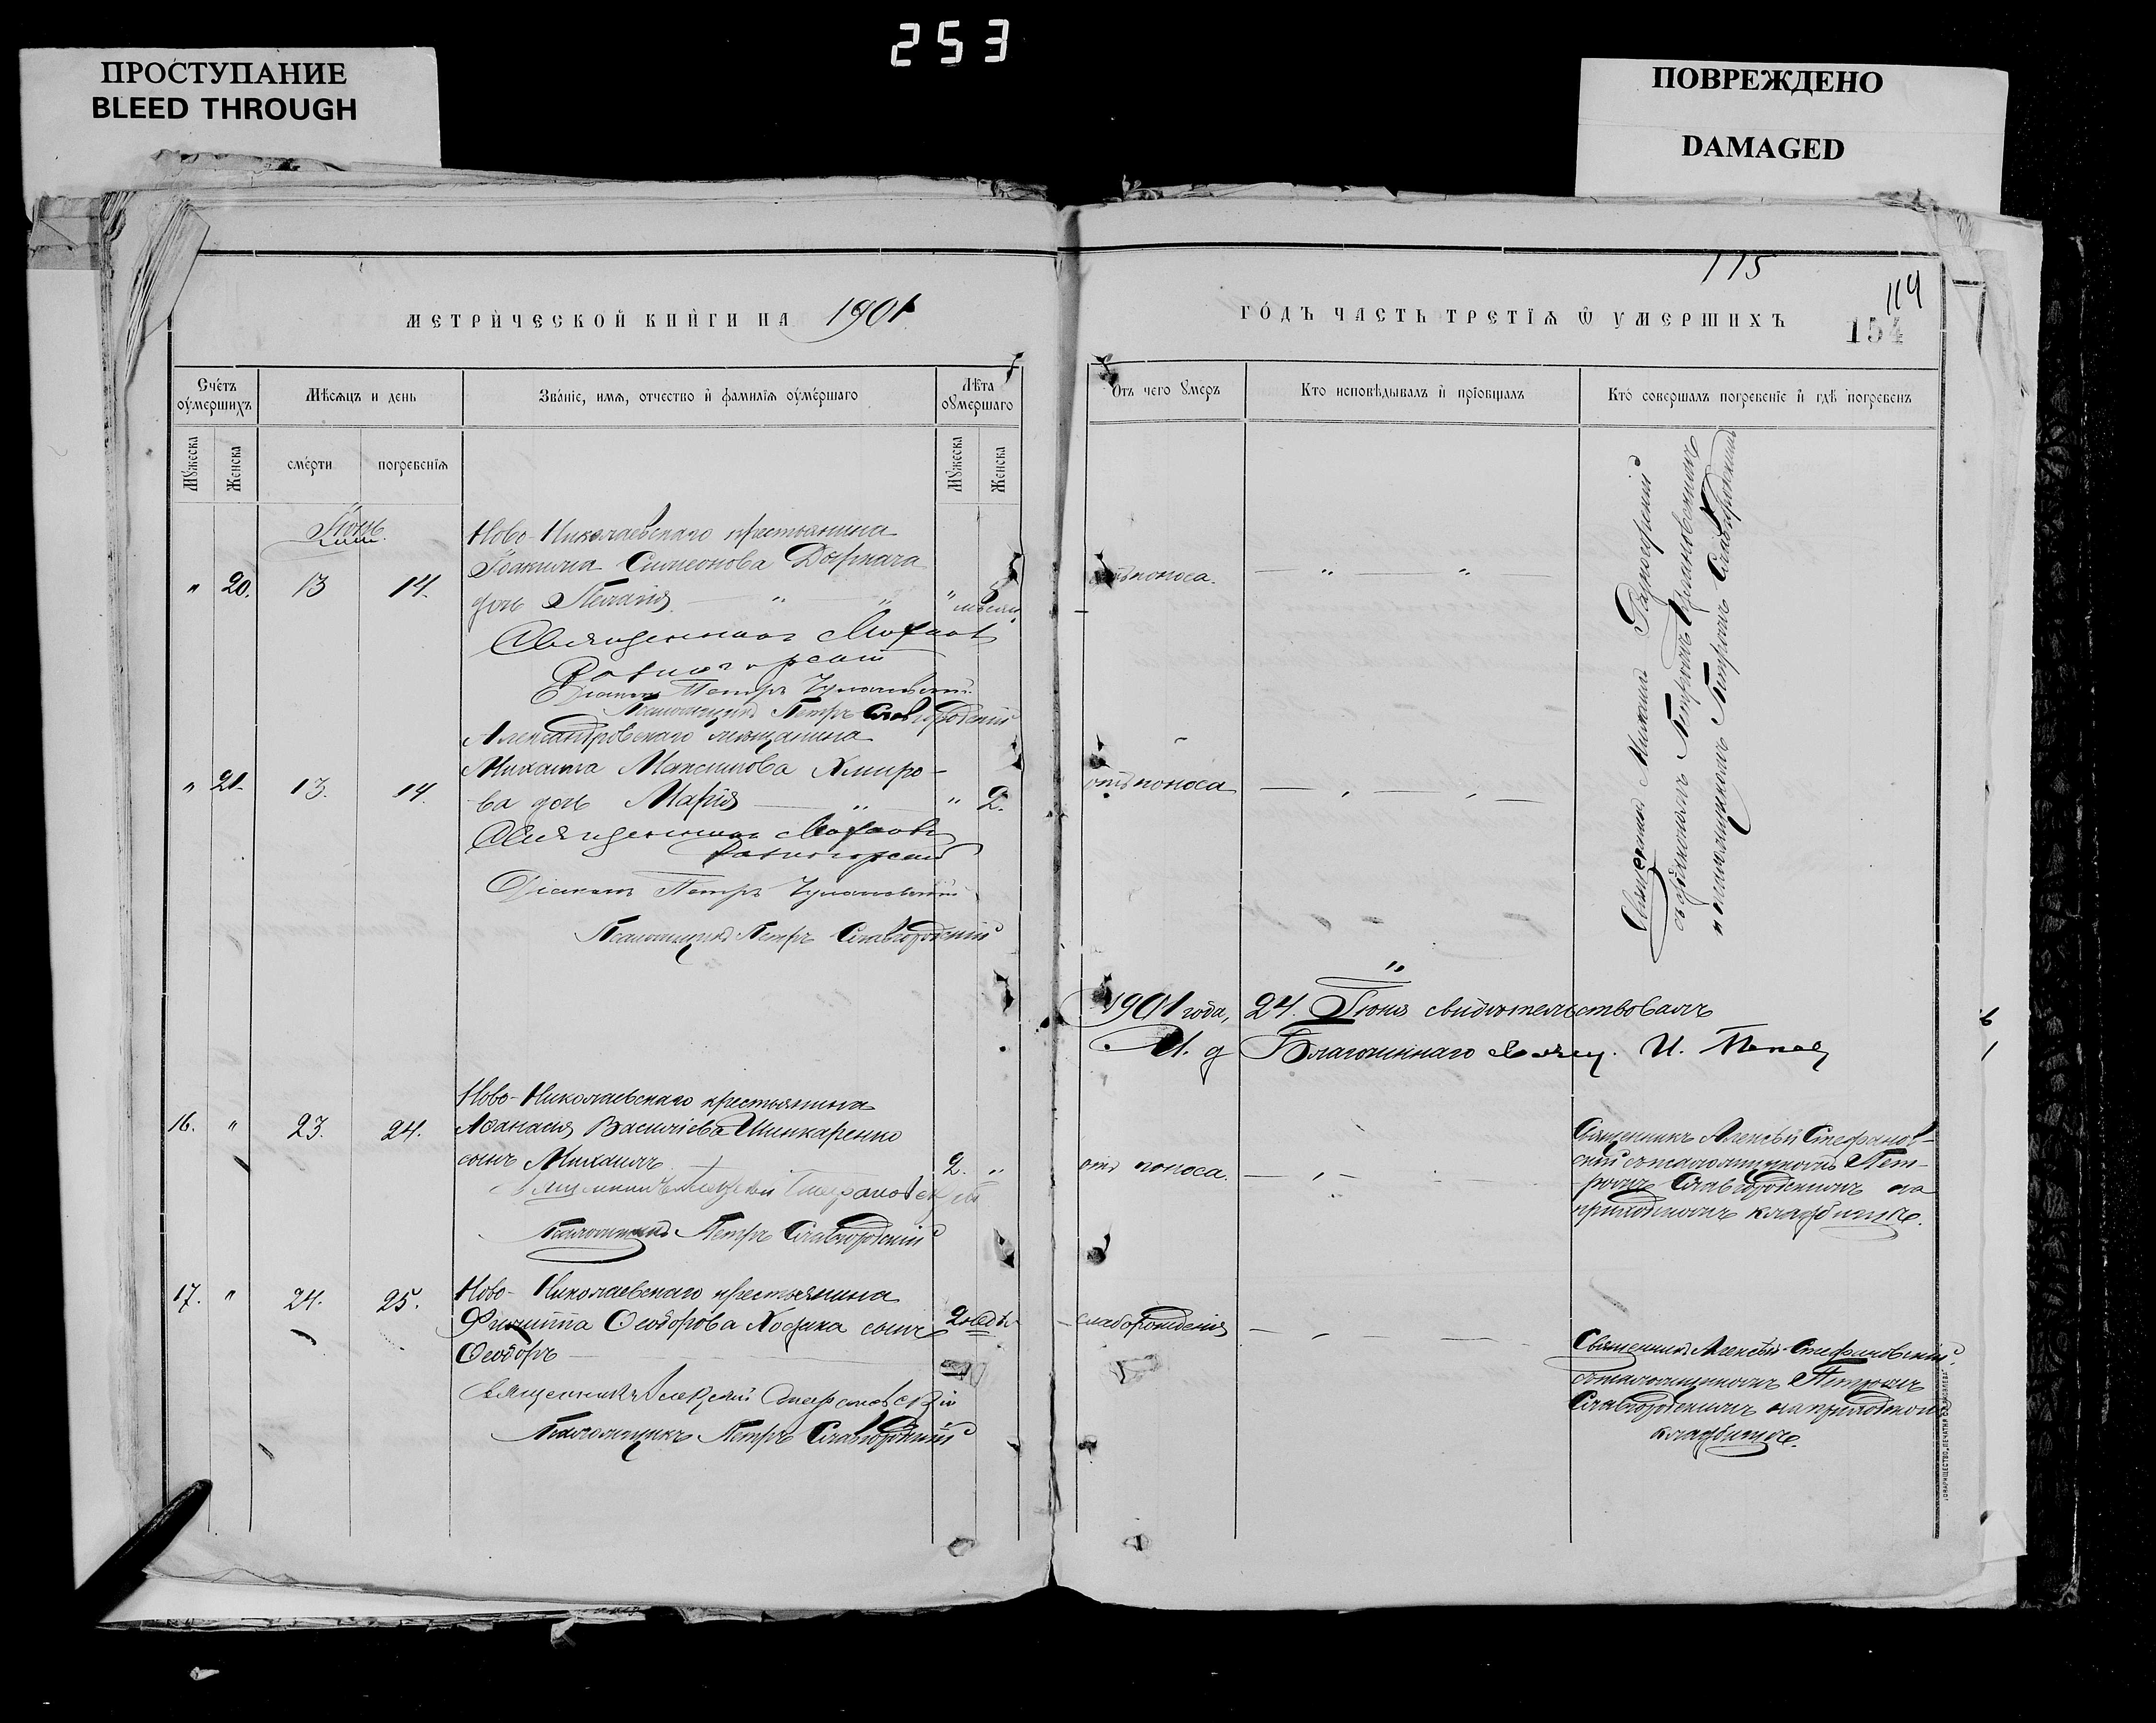 253
ПРОСТУПАНИЕ
BLEED THROUGH
ПОВРЕЖДЕНО
DAMAGED
115
114
154
МЕТРИЧЕСКОЙ КНИГИ НА 1901
ГОДЪ ЧАСТЬ ТРЕТІЯ Ѡ УМЕРШИХЪ
Счетъ оумершихъ
Мѣсяцъ и день
Званіе, имя, отчество и фамилія оумершаго
Лѣта оумершаго
Отъ чего умеръ
Кто исповѣдывалъ и пріобщалъ
Кто совершалъ погребеніе и гдѣ погребенъ
Мужеска
Женска
смерти
погребенія
Мужеска
Женска
Іюнь.
Ново-Николаевскаго крестьянина
Іоакима Симеонова Дыркача
" 20. 13 14. дочь Пелагія " " " 5 мѣсяц.
отъ поноса. — " — " —
Священникъ Михаилъ
Разногорскій
Діаконъ Петръ
Псаломщикъ Петръ Славгородскій
Александровскаго мѣщанина
Михаила Максимова Хмиро-
" 21. 13. 14. ва дочь Марія — " " 2.
отъ поноса — " — " —
Священникъ Михаилъ
Разногорскій
Діаконъ Петръ
Псаломщикъ Петръ Славгородскій
Священникъ Михаилъ Разногорскій
съ діакономъ Петромъ
и псаломщикомъ Петромъ Славгородскимъ
"
1901 года, 24. Іюня свидѣтельствовалъ
И. д Благочиннаго Свящ. И. Попов
Ново-Николаевскаго крестьянина
16. " 23. 24. Аѳанасія Василіева Шинкаренко
сынъ Михаилъ 2. "
отъ поноса. — " —
Священникъ Алексѣй Стефановскій
Псаломщикъ Петръ Славгородскій
Священникъ Алексѣй Стефанов-
скій съ псаломщикомъ Пет-
ромъ Славгородскимъ на
приходскомъ кладбищѣ.
17. " 24. 25. Ново-Николаевскаго крестьянина
Филиппа Ѳеодорова Кодика сынъ 2 недѣ
Ѳеодоръ
слаборожденія
Священникъ Алексѣй Стефановскій
Псаломщикъ Петръ Славгородскій
Священникъ Алексѣй Стефановскій
съ псаломщикомъ Петромъ
Славгородскимъ на приходскомъ
кладбищѣ.